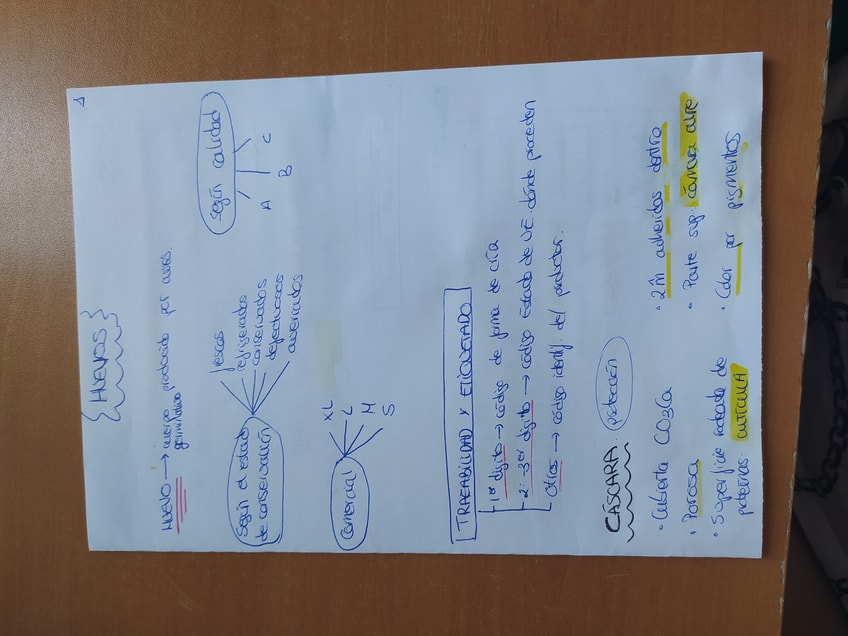 1
HUEVOS
HUEVO → cuerpo producido por aves.
germinativo
Según el estado
de conservación
frescos
refrigerados
conservados
defectuosos
averiados
Según calidad
A
B
C
Comercial
XL
L
M
S
TRAZABILIDAD Y ETIQUETADO
- 1er dígito → código de forma de cría
- 2º- 3er dígito → código Estado de UE. dónde proceden
Otros → código identif del productor.
CÁSCARA: protección
• Cubierta CO3Ca
• Porosa
• Superficie rodeada de
proteínas: CUTÍCULA
• 2 m adheridas dentro
• Parte sup. cámara aire
• Color por pigmentos